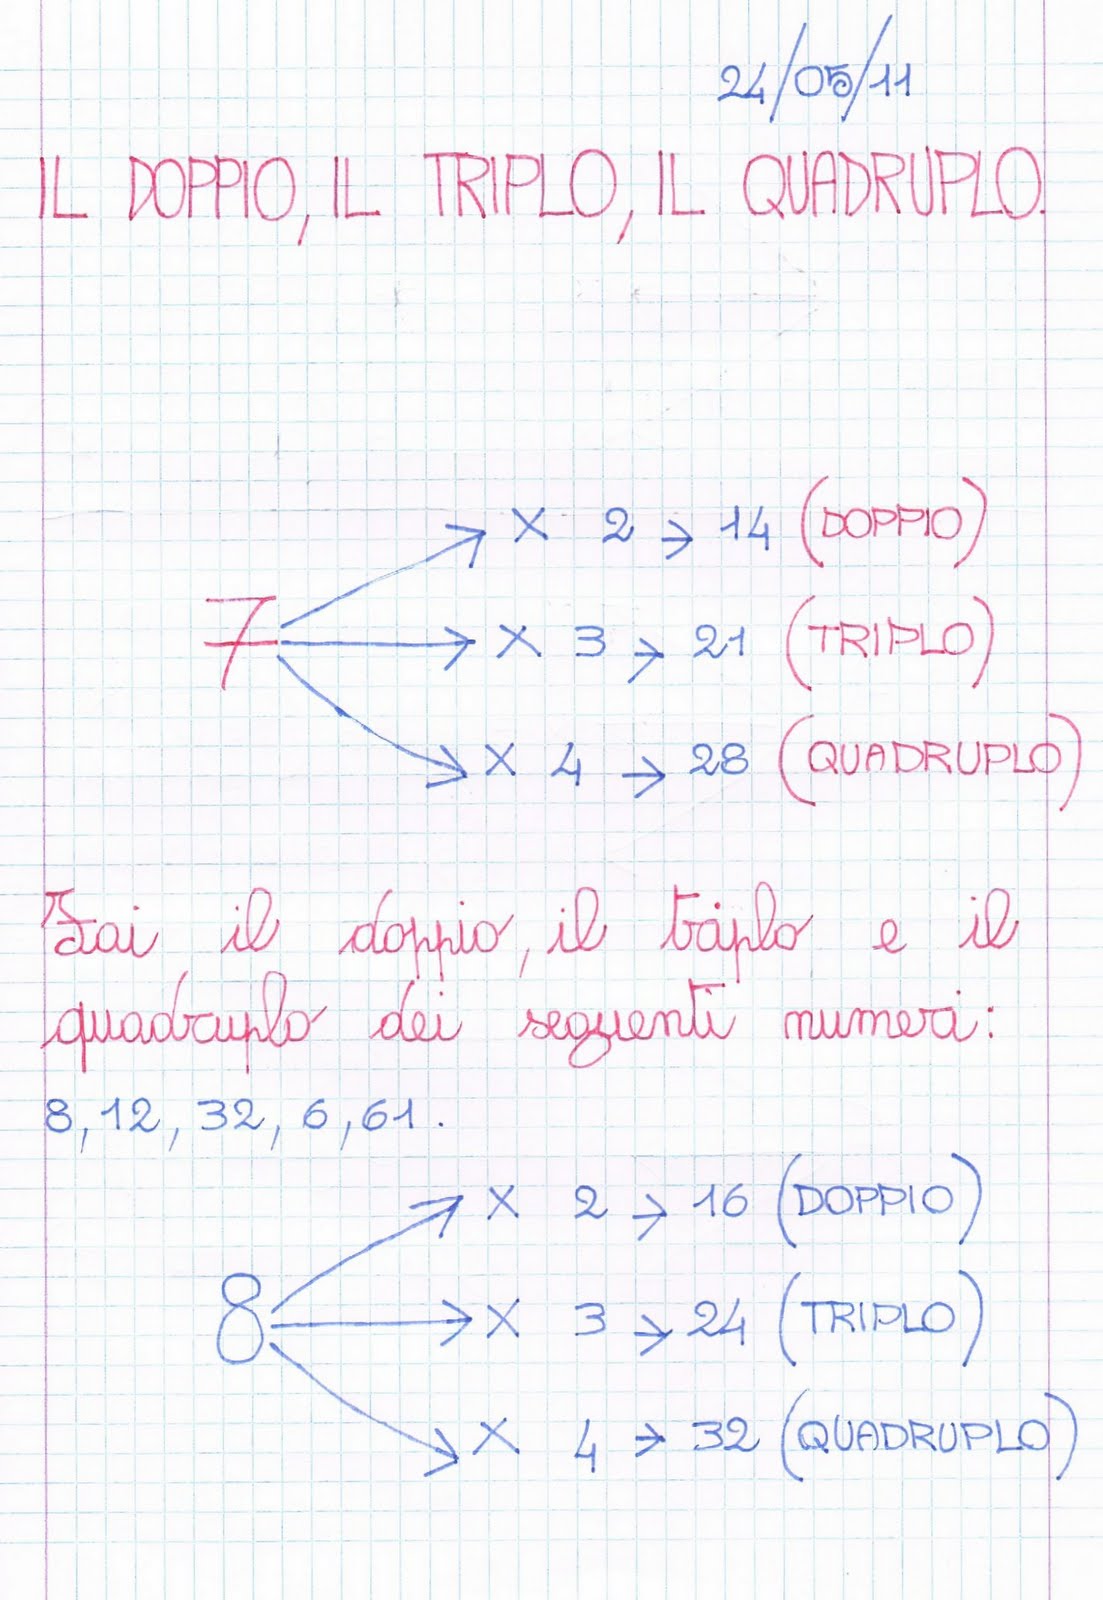 24/05/11
IL DOPPIO, IL TRIPLO, IL QUADRUPLO.
X 2 → 14 (DOPPIO)
7 X 3 → 21 (TRIPLO)
X 4 → 28 (QUADRUPLO)
Fai il doppio, il triplo e il
quadruplo dei seguenti numeri:
8, 12, 32, 6, 61.
X 2 → 16 (DOPPIO)
8 X 3 → 24 (TRIPLO)
X 4 → 32 (QUADRUPLO)